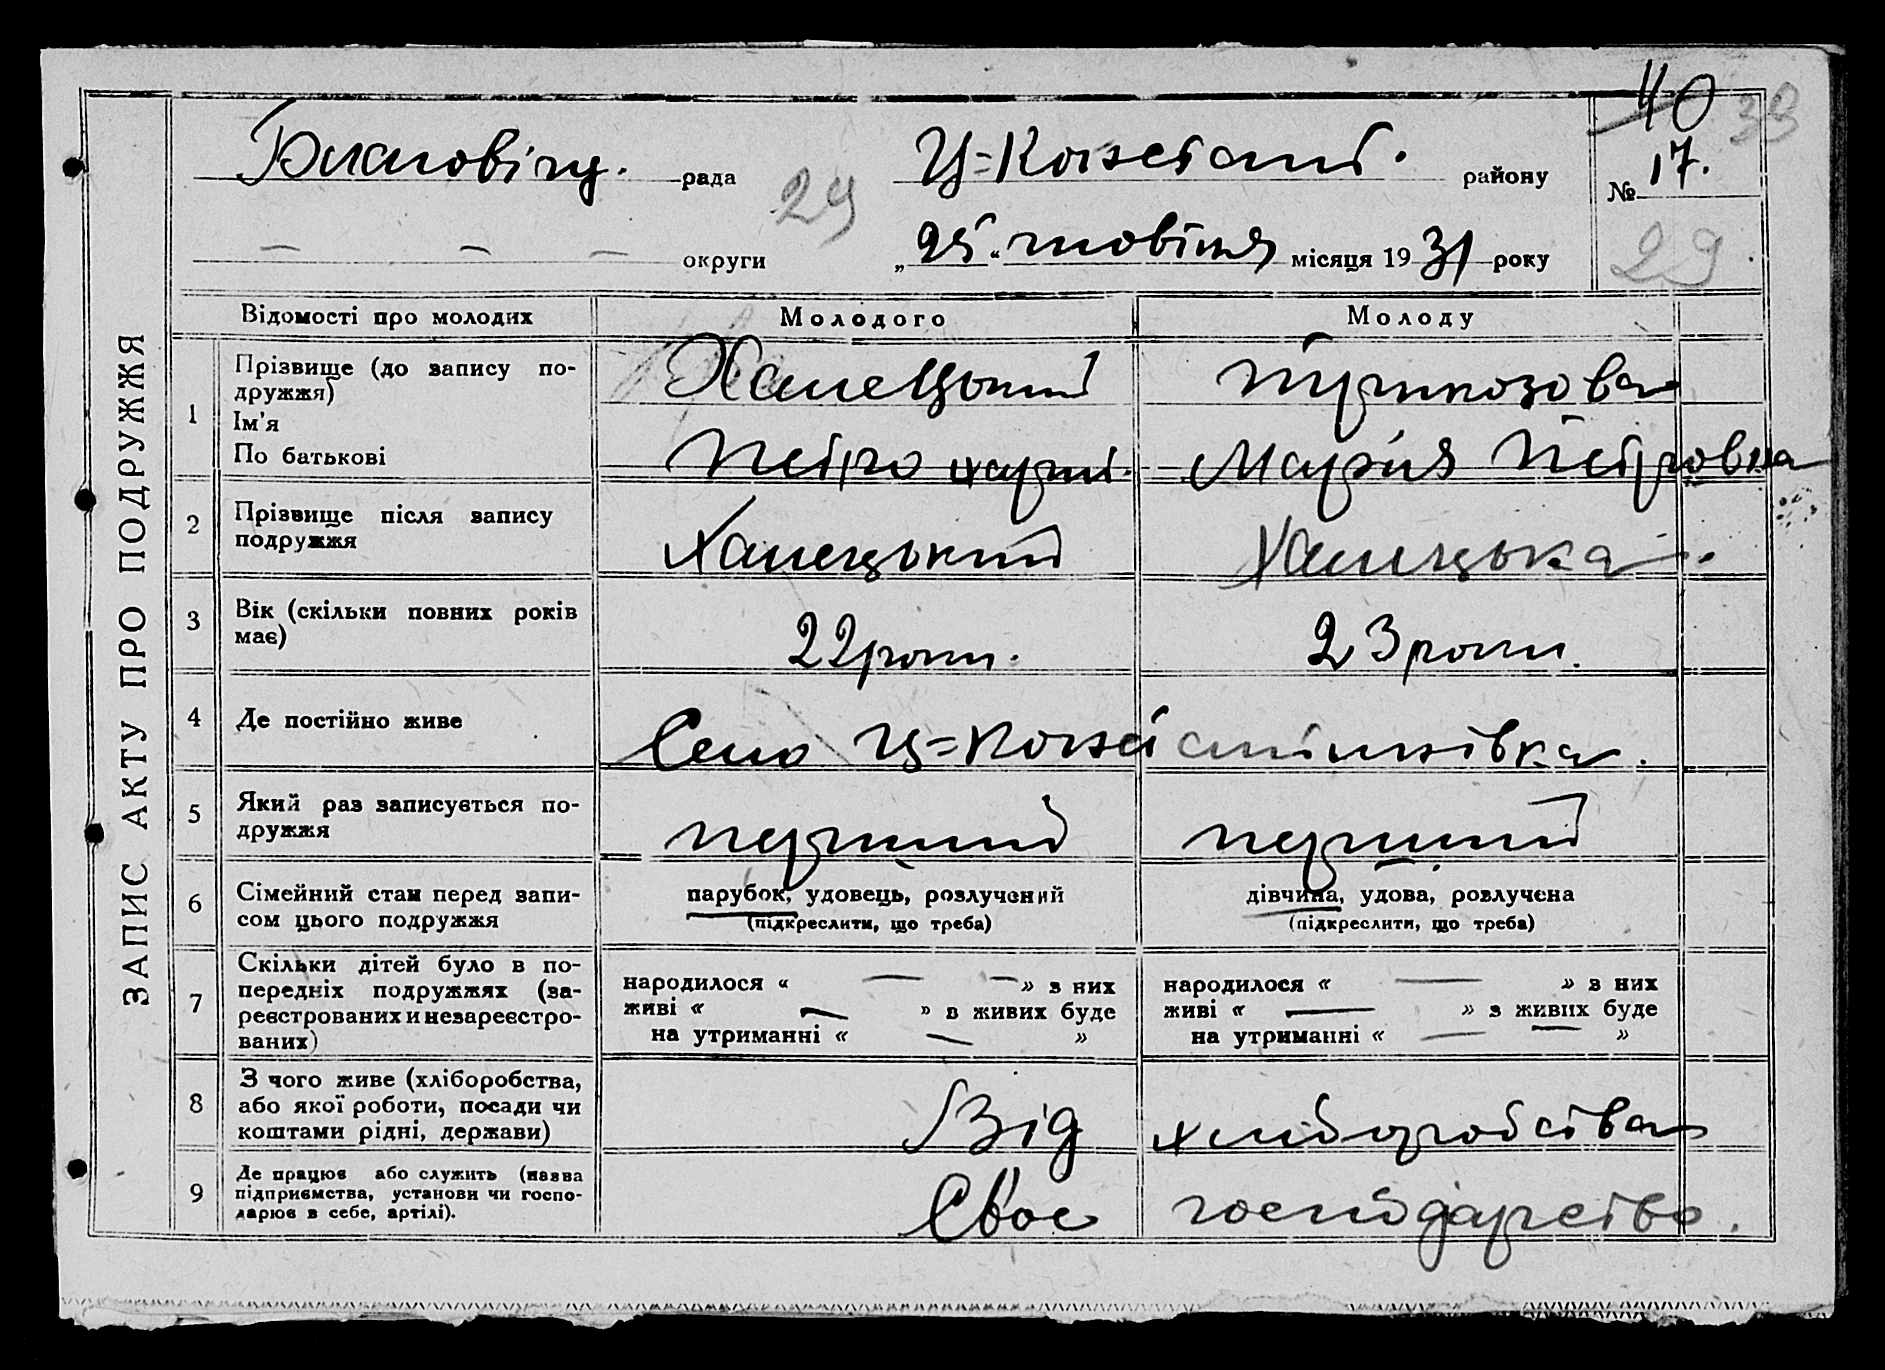 40 39
Благовіщ. рада
Ц=Констант. району
№ 17.
29
— — — округи
„25“ жовтня місяця 1931 року
29
ЗАПИС АКТУ ПРО ПОДРУЖЖЯ
Відомості про молодих
Молодого
Молоду
1
Прізвище (до запису по-
дружжя)
Ім'я
По батькові
Ханецький
Петро
Марія Петровна
2
Прізвище після запису
подружжя
Ханецький
Ханецька.
3
Вік (скільки повних років
має)
22 роки.
23 роки.
4
Де постійно живе
Село Ц=Константинівка.
5
Який раз записується по-
дружжя
перший
перший
6
Сімейний стан перед запи-
сом цього подружжя
парубок, удовець, розлучений
(підкреслити, що треба)
дівчина, удова, розлучена
(підкреслити, що треба)
7
Скільки дітей було в по-
передніх подружжях (за-
реєстрованих и незареєстро-
ваних)
народилося « — — » з них
живі « — » в живих буде
на утриманні « — »
народилося « — » з них
живі « — » з живих буде
на утриманні « — — »
8
З чого живе (хліборобства,
або якої роботи, посади чи
коштами рідні, держави)
Від хліборобства
9
Де працює або служить (назва
підприємства, установи чи госпо-
дарює в себе, артілі).
Своє господарство.